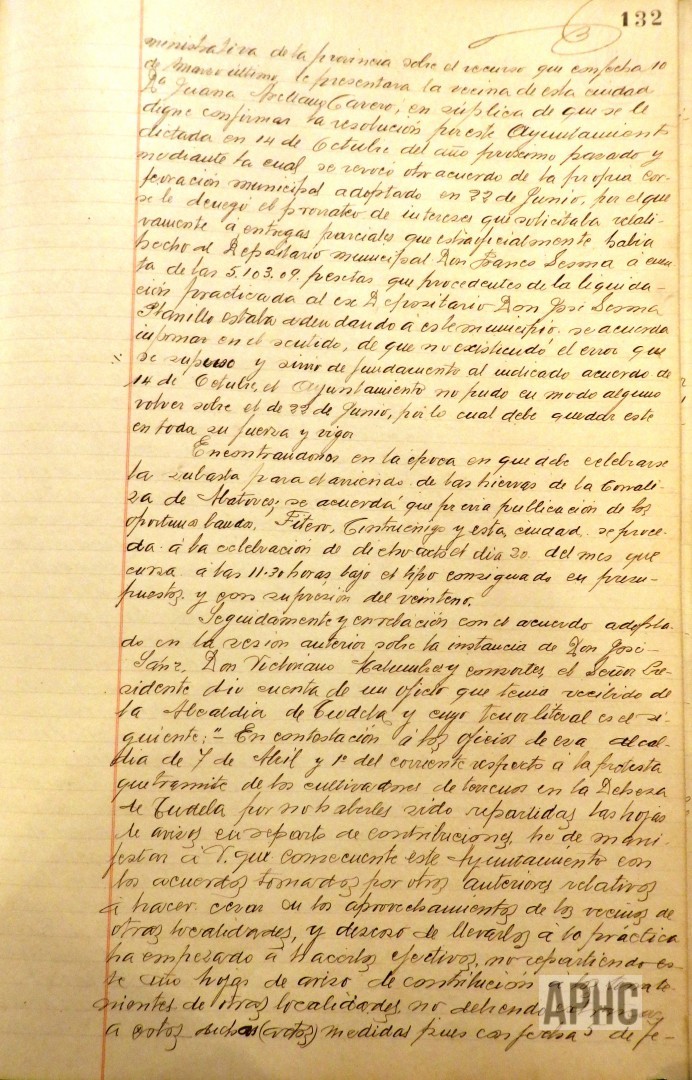 132
ministrativa de la provincia sobre el recurso que con fecha 10
de Marzo último, le presentara la vecina de esta ciudad
Dª Juana Arellano Cavero, en súplica de que se le
digne confirmar la resolución por este Ayuntamiento
dictada en 14 de Octubre del año próximo pasado y
mediante la cual se revocó otro acuerdo de la propia Cor-
poración municipal adoptado en 22 de Junio, por el que
se le denegó el prorrateo de intereses que solicitaba relati-
vamente á entregas parciales que extraoficialmente había
hecho al Depositario municipal Don Franco Sesma á cuen-
ta de las 5.103.09. pesetas que procedentes de la liquida-
ción practicada al ex Depositario Don José Sesma
Planillo estaba adeudando á este municipio, se acuerda
informar en el sentido, de que no existiendo el error que
se supuso y sirvió de fundamento al indicado acuerdo de
14 de Octubre, el Ayuntamiento no pudo en modo alguno
volver sobre el de 22 de Junio, por lo cual debe quedar este
en toda su fuerza y vigor
Encontrandonos en la época en que debe celebrarse
la subasta para el arriendo de las hierbas de la Corrali-
za de Abatores; se acuerda que previa publicación de los
oportunos bandos, Fitero, Cintruenigo y esta ciudad se proce-
da á la celebración de dicho acto el día 20 del mes que
cursa á las 11.30 horas, bajo el tipo consignado en presu-
puestos y con supresión del veinteno.
Seguidamente y en relación con el acuerdo adopta-
do en la sesión anterior sobre la instancia de Don José
Sanz, Don Victoriano y consortes, el Señor Pre-
sidente dio cuenta de un oficio que tenía recibido de
la Alcaldia de Tudela, y cuyo tenor literal es el si-
guiente: "En contestación á los oficios de esa Alcal-
día de 7 de Abril y 1º del corriente respecto á la protesta
que tramite de los cultivadores de terrenos en la Dehesa
de Tudela por no haberles sido repartidas las hojas
de avisos en reparto de contribuciones, he de mani-
festar á V. que consecuente este Ayuntamiento con
los acuerdos tomados por otros anteriores relativos
á hacer cesar en los aprovechamientos de los vecinos de
otras localidades, y deseoso de llevarlos á la práctica
ha empezado á hacerlos efectivos, no repartiendo es-
te año hojas de aviso de contribución a los terrate-
nientes de otras localidades, no debiendo
a estos dichas (estos) medidas pues con fecha 5 de Fe-
APHC